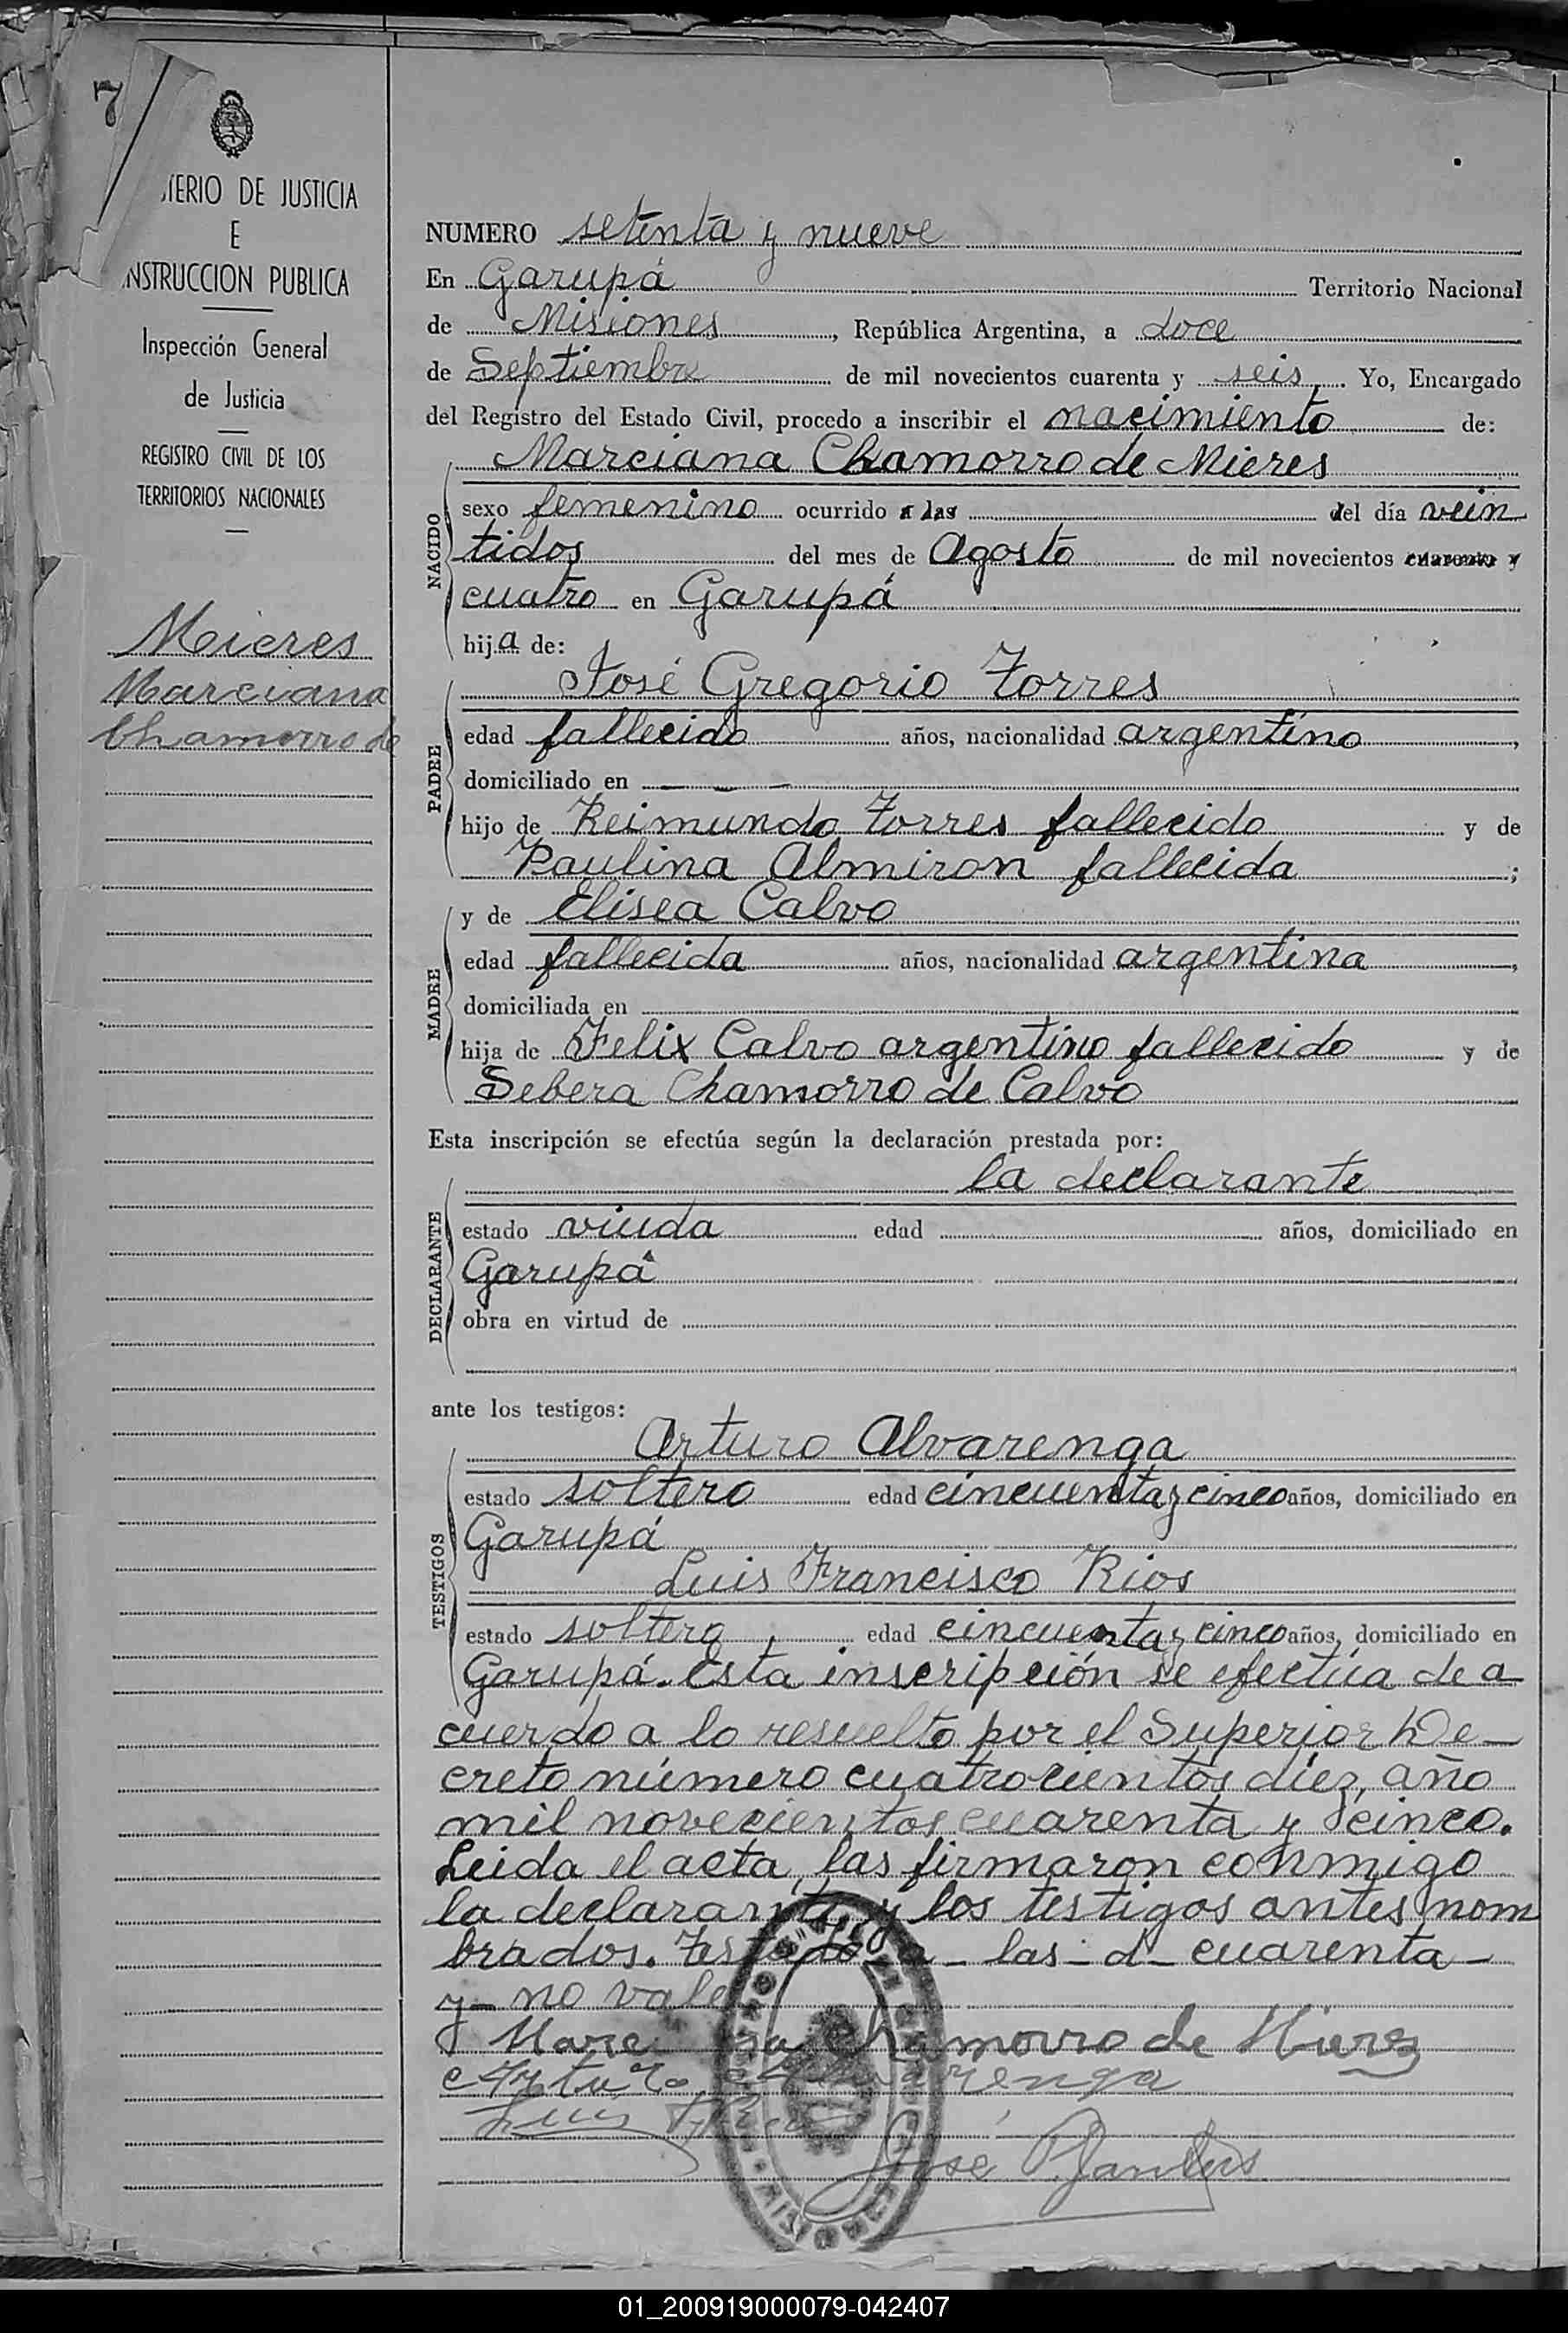 7
TERIO DE JUSTICIA
E
NSTRUCCION PUBLICA
Inspección General
de Justicia
REGISTRO CIVIL DE LOS
TERRITORIOS NACIONALES
Mieres
Marciana
Chamorro de
NUMERO setenta y nueve
En Garupá Territorio Nacional
de Misiones, República Argentina, a doce
de Septiembre de mil novecientos cuarenta y seis. Yo, Encargado
del Registro del Estado Civil, procedo a inscribir el nacimiento de:
Marciana Chamorro de Mieres
NACIDO
sexo femenino ocurrido a las del día vein
tidos del mes de Agosto de mil novecientos cuarenta y
cuatro en Garupá
hija de:
José Gregorio Torres
PADRE
edad fallecido años, nacionalidad argentino,
domiciliado en — — —
hijo de Reimundo Torres fallecido y de
Paulina Almiron fallecida;
y de Elisea Calvo
MADRE
edad fallecida años, nacionalidad argentina,
domiciliada en
hija de Felix Calvo argentino fallecido y de
Sebera Chamorro de Calvo
Esta inscripción se efectúa según la declaración prestada por:
la declarante
DECLARANTE
estado viuda edad años, domiciliado en
Garupá
obra en virtud de
ante los testigos:
Arturo Alvarenga
TESTIGOS
estado soltero edad cincuenta y cinco años, domiciliado en
Garupá
Luis Francisco Rios
estado soltero edad cincuenta y cinco años, domiciliado en
Garupá. Esta inscripción se efectúa de a
cuerdo a lo resuelto por el Superior De-
creto número cuatrocientos diez, año
mil novecientos cuarenta y cinco.
Leida el acta, las firmaron conmigo
la declarante y los testigos antes nom
brados. Testado a - las - d - cuarenta -
y - no vale
Chamorro de Mieres
Arturo Alvarenga
Luis
José
01_200919000079-042407